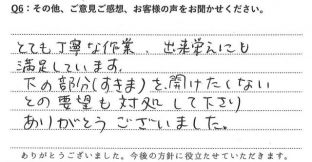 Q6：その他、ご意見ご感想、お客様の声をお聞かせください。
とても丁寧な作業、出来栄えにも
満足しています。
下の部分(すきま)を開けたくない
との要望も対処して下さり
ありがとうございました。
ありがとうございました。今後の方針に役立たせていただきます。